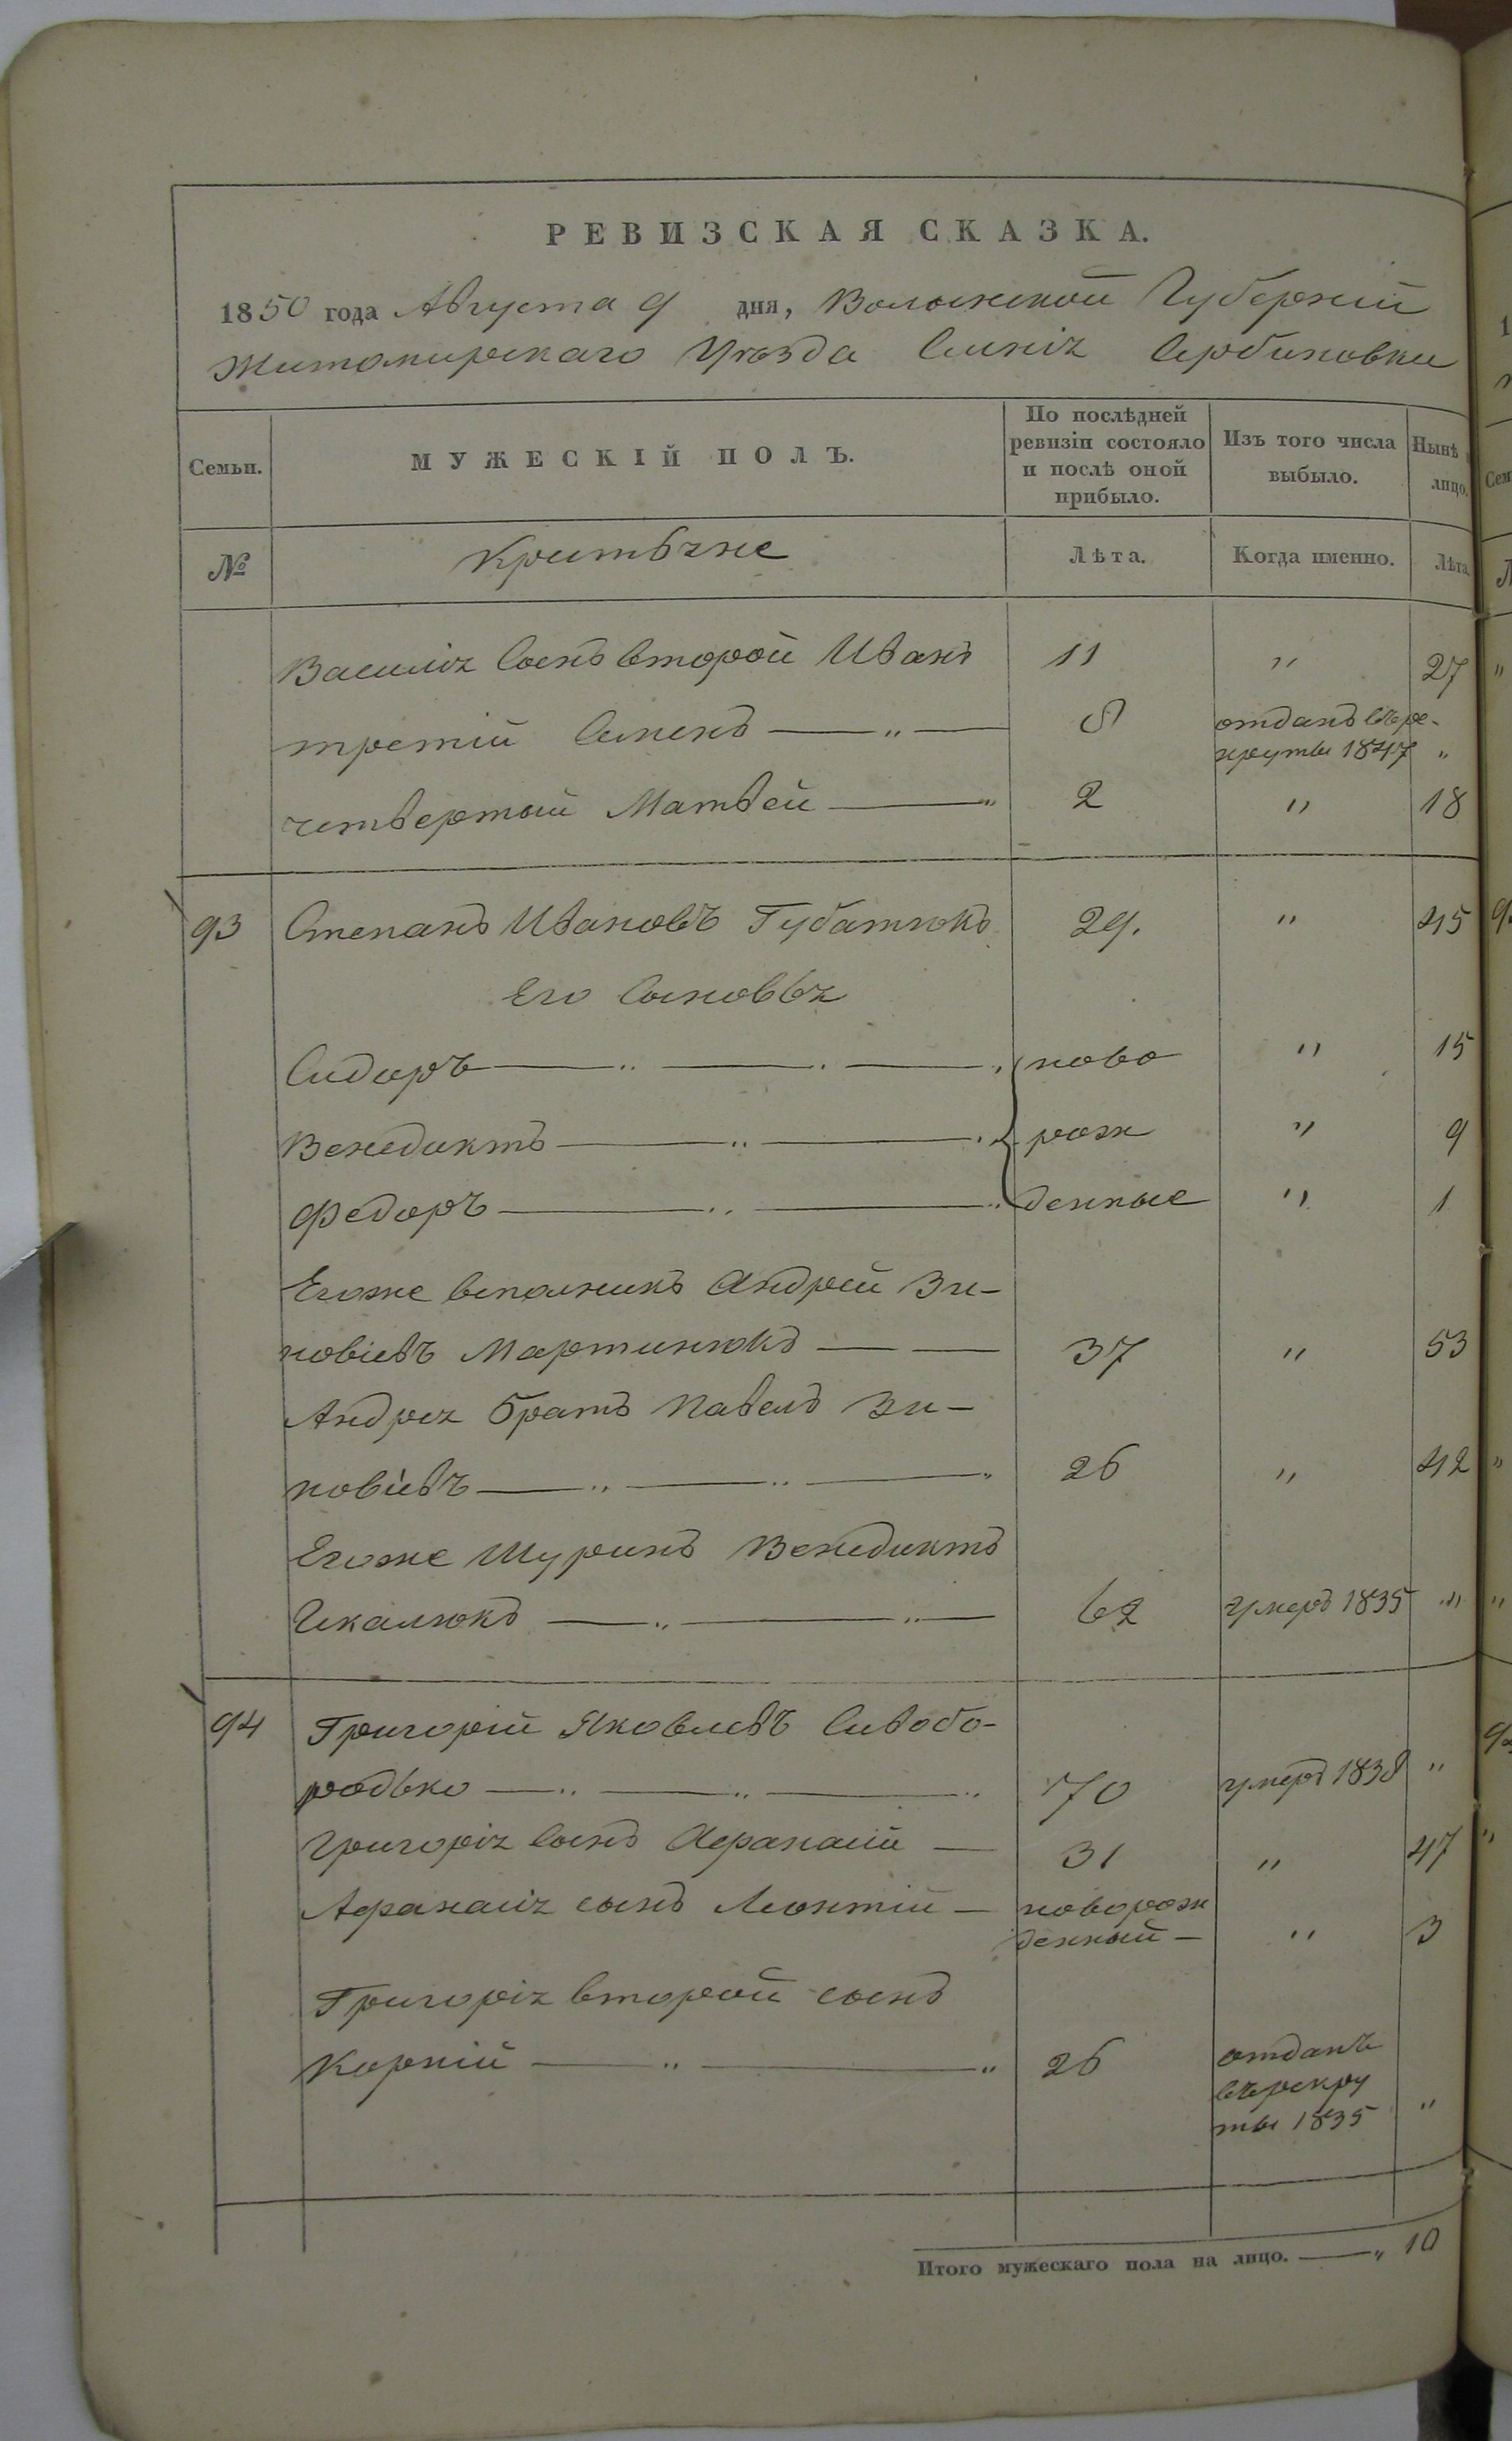 РЕВИЗСКАЯ СКАЗКА.
1850 года Августа 9 дня, Волынской Губерніи
Житомирскаго Уѣзда Селенія Сербиновки
Семьи. МУЖЕСКІЙ ПОЛЪ. По послѣдней ревизіи состояло и послѣ оной прибыло. Изъ того числа выбыло. Нынѣ лицо.
№ Лѣта. Когда именно. Лѣта.
Василія Сынъ второй Иванъ 11 " 27
третій Семенъ — " — 8 отданъ въ ре-
круты 1847 "
четвертый Матвѣй — " 2 " 18
93 Степанъ Ивановъ Губатюкъ 29. " 45
Его Сыновья
Сидоръ — " — " — " ново " 15
Венедиктъ — " — " рож " 9
Федоръ — " — " денные " 1
Егоже вполникъ Андрей Зи-
новіевъ Мартинюкъ — — 37 " 53
Андрея братъ Павелъ Зи-
новіевъ — " — " — " 26 " 42
Егоже Шуринъ Венедиктъ
— " — " — 62 умеръ 1835 "
94 Григорій Яковлевъ Сивобо-
родько — " — " — " 70 умеръ 1838 "
Григорія Сынъ Афанасій — 31 " 47
Афанасія сынъ Леонтій — новорож
денный — " 3
Григорія второй сынъ
Корній — " — " 26 отданъ
въ рекру
ты 1835 "
Итого мужескаго пола на лицо. — " 10